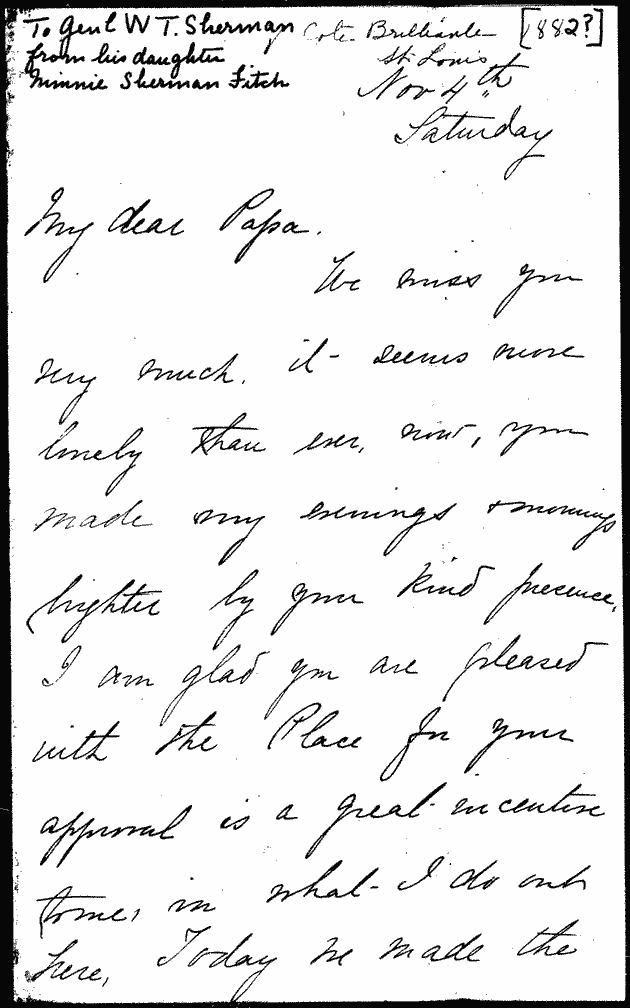 To Genl W T. Sherman
from his daughter
Minnie Sherman Fitch
Cote Brilliante [1882?]
St. Louis
Nov 4th
Saturday
My dear Papa.
We miss you
very much. it seems more
lonely than ever, now, you
made my evenings + mornings
brighter by your kind presence,
I am glad you are pleased
with the Place for your
approval is a great incentive
to me, in what I do out
here, Today we made the